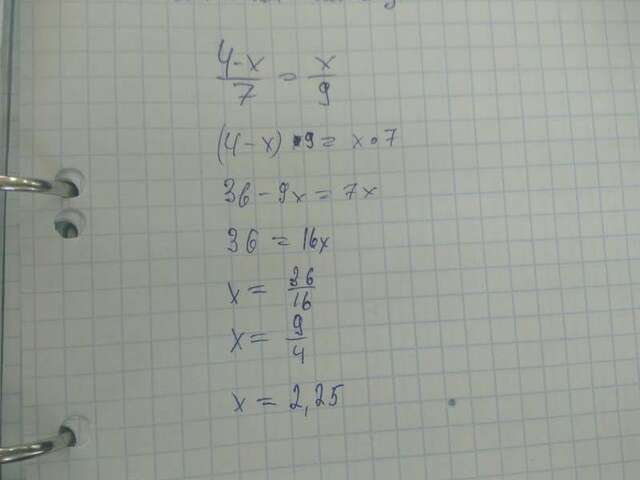 (4-x)/7 = x/9
(4-x)•9 = x•7
36 - 9x = 7x
36 = 16x
x = 36/16
x = 9/4
x = 2,25